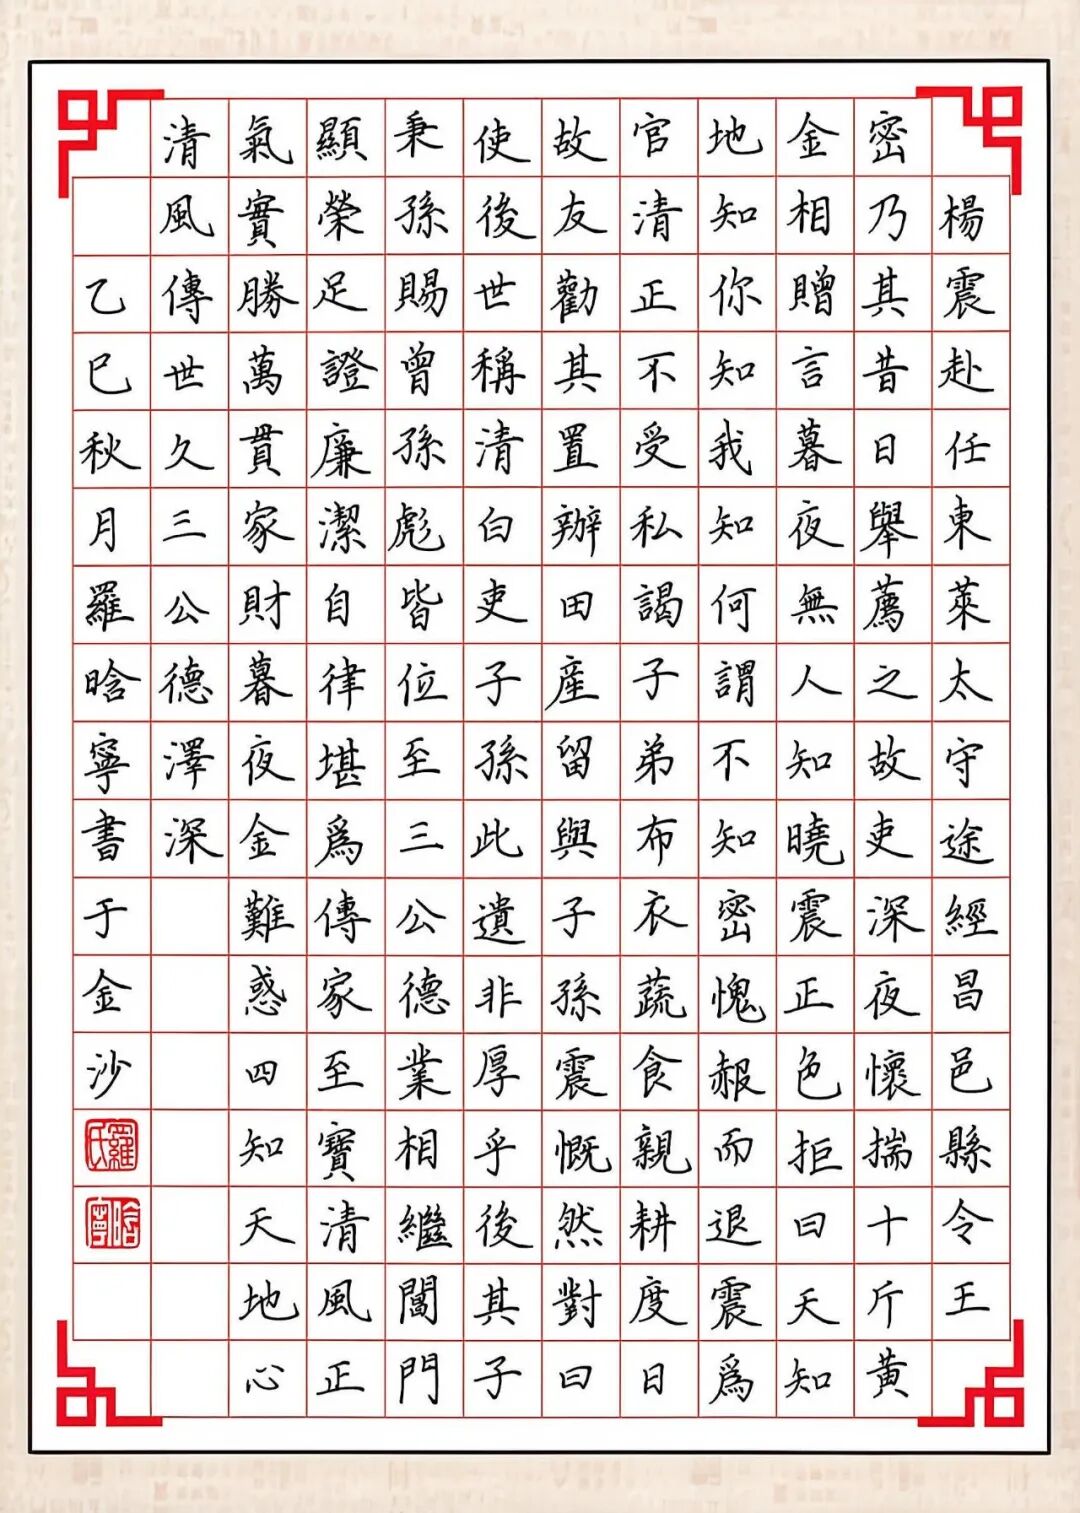 楊震赴任東萊太守途經昌邑縣令王
密乃其昔日舉薦之故吏深夜懷揣十斤黃
金相贈言暮夜無人知曉震正色拒曰天知
地知你知我知何謂不知密愧赧而退震為
官清正不受私謁子弟布衣蔬食親耕度日
故友勸其置辦田產留與子孫震慨然對曰
使後世稱清白吏子孫此遺非厚乎後其子
秉孫賜曾孫彪皆位至三公德業相繼闔門
顯榮足證廉潔自律堪為傳家至寶清風正
氣實勝萬貫家財暮夜金難惑四知天地心
清風傳世久三公德澤深
乙巳秋月羅晗寧書于金沙
羅氏
晗寧